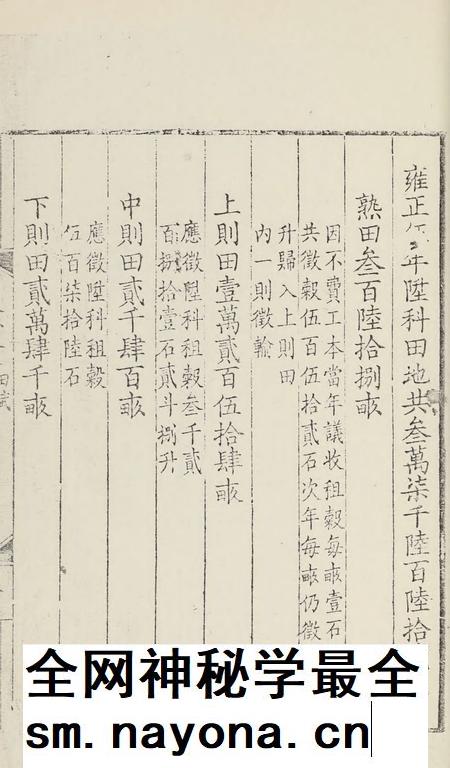 雍正年陞科田地共叁萬柒千陸百陸拾
熟田叁百陸拾捌畝
因不費工本當年議收租穀每畝壹石
共徵穀伍百伍拾貳石次年每畝仍徵
升歸入上則田
内一則徵輸
上則田壹萬貳百伍拾肆畝
應徵陞科租穀叁千貳
百捌拾壹石貳斗捌升
中則田貳千肆百畝
應徵陞科租穀
伍百柒拾陸石
下則田貳萬肆千畝
全网神秘学最全
sm.nayona.cn